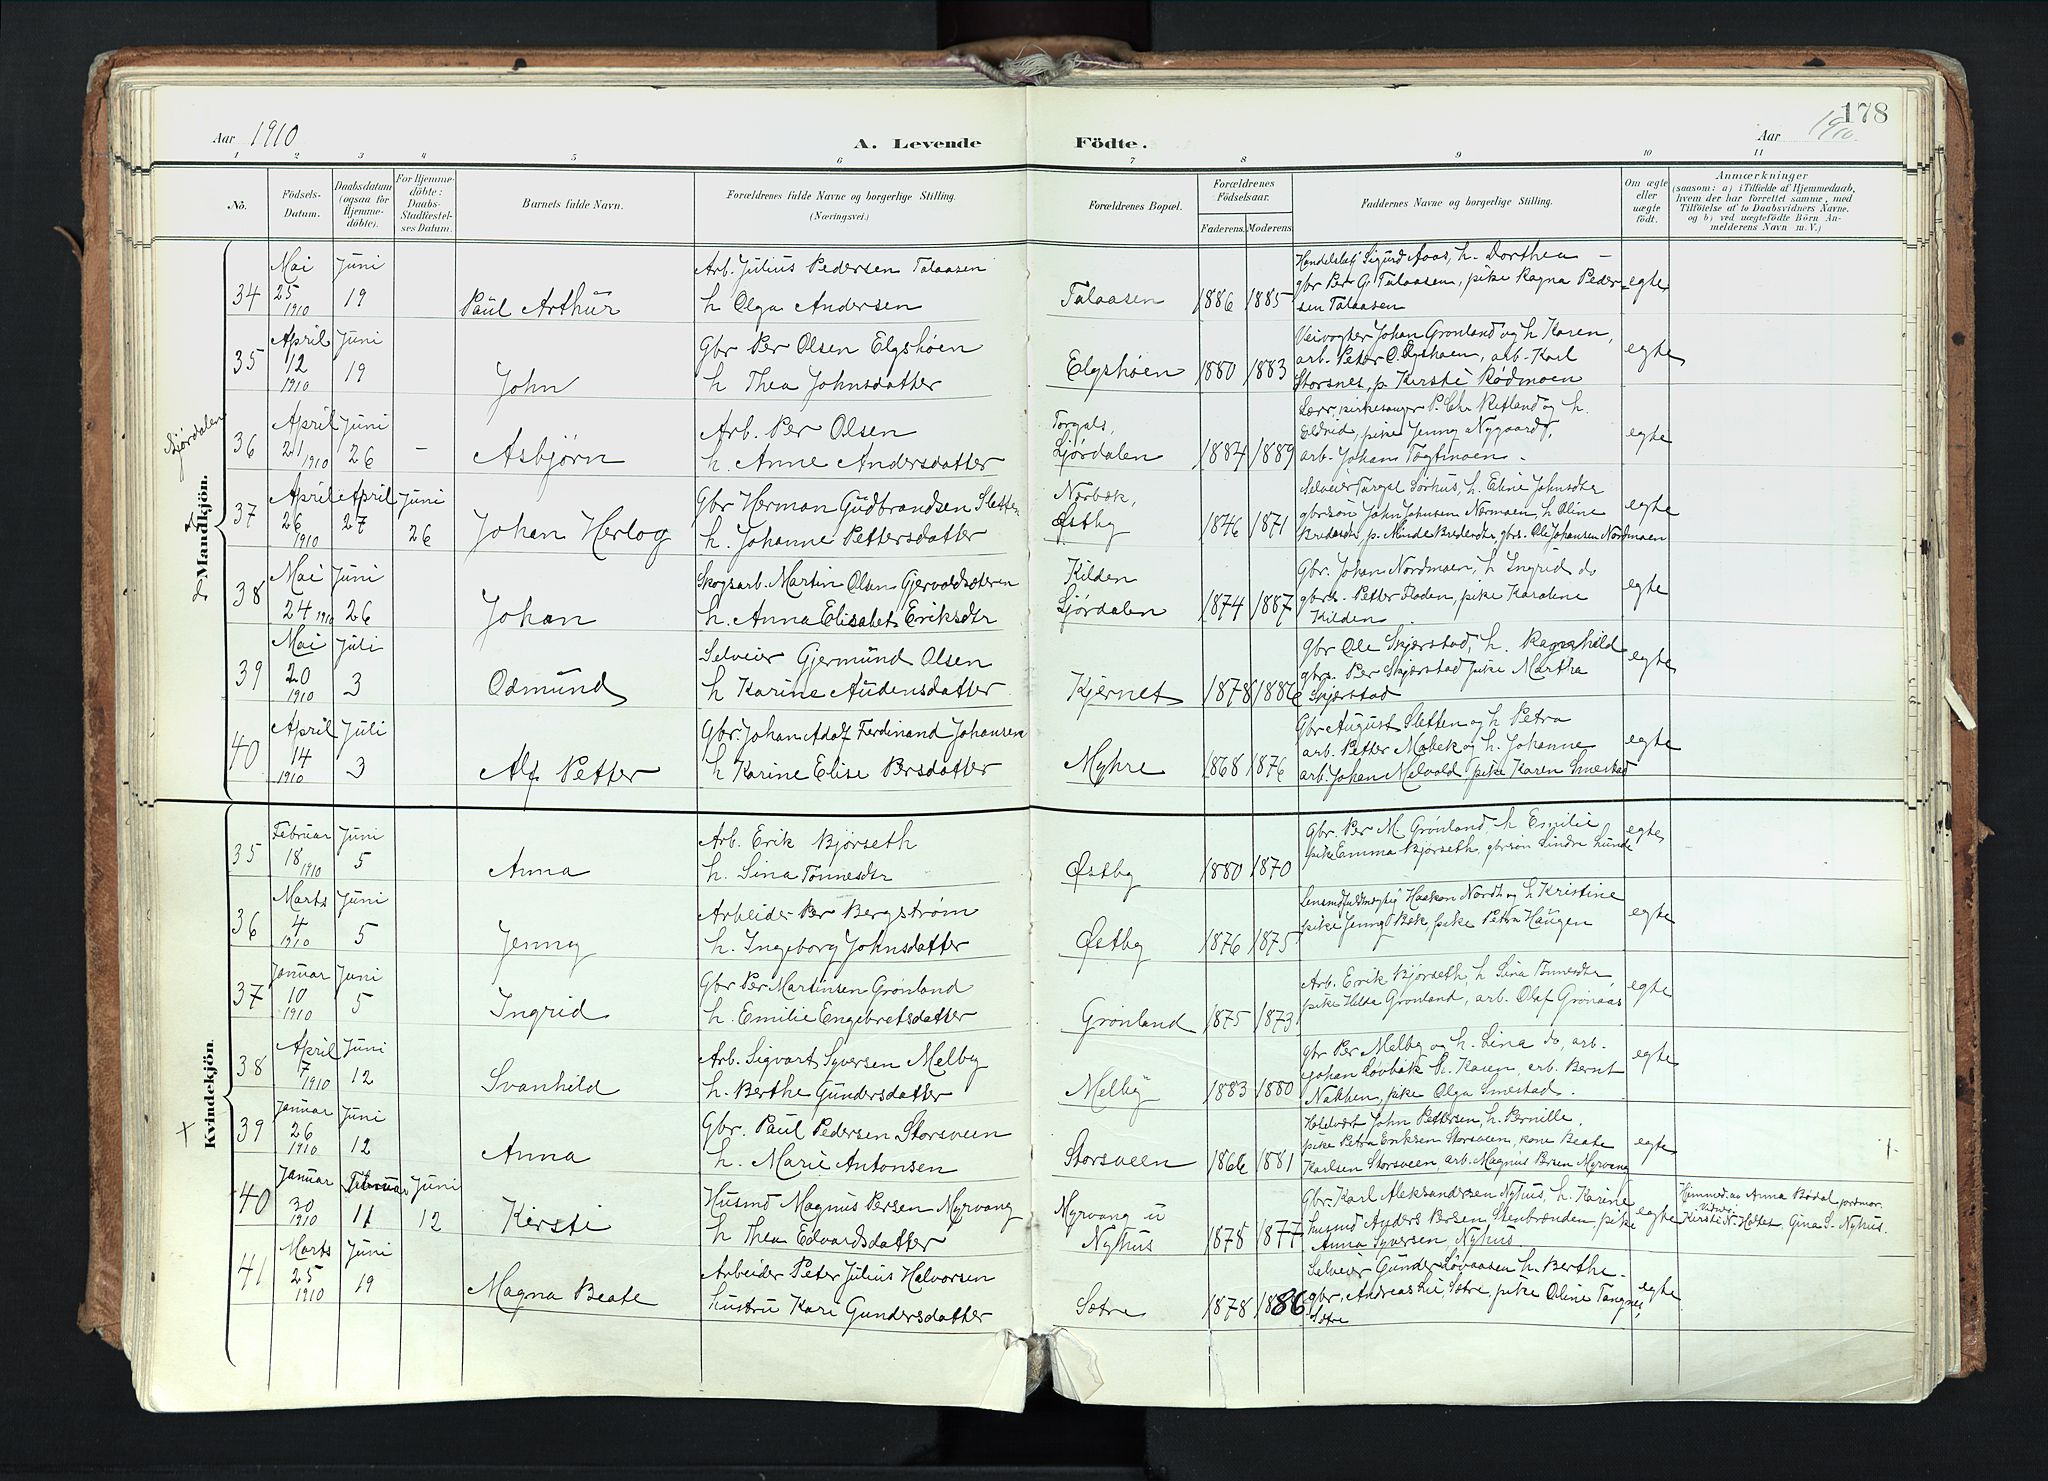 178
Aar 1910
A. Levende
Födte.
Aar 1910
1 2 3 4 5 6 7 8 9 10 11
Nò.
Födsels-
Datum.
Daabsdatum
(ogsaa for
Hjemme-
döbte).
For Hjemme-
döbte:
Daabs-
Stadfæstel-
ses Datum.
Barnets fulde Navn.
Forældrenes fulde Navne og borgerlige Stilling.
(Næringsvei.)
Forældrenes Bopæl.
Forældrenes
Födselsaar.
Faderens.
Moderens.
Faddernes Navne og borgerlige Stilling.
Om ægte
eller
uægte
födt.
Anmærkninger
(saasom: a) i Tilfælde af Hjemmedaab,
hvem der har forrettet samme, med
Tilföielse af to Daabsvidners Navne.
og b) ved uægtefödte Börn An-
melderens Navn m. V.)
Mandkjön.
34
Mai
25
1910
Juni
19
Paul Arthur
Arb. Julius Pedersen Talaasen
h Olga Andersen
Talaasen
1886
1885
Handelsbetj. Sigurd Aaas, h. Dorthea –
gbr Per G. Talaasen, pike Ragna Peder-
sen Talaasen
egte
35
April
12
1910
Juni
19
John
Gbr Per Olsen Elgshøen
h Thea Johnsdatter
Elgshøen
1880
1883
Veivogter Johan Grønland og h Karen,
arb. Peter O. Elgshøen, arb. Karl
Storsnes, p. Kirsti Rødmoen
egte
Ljørdalen
36
April
21
1910
Juni
26
–
Asbjørn
Arb. Per Olsen
h. Anne Andersdatter
Torgals,
Ljørdalen
1884
1889
Lærer, kirkesanger P. Chr Retland og h.
Eldrid, pike Jenny Nygaard,
arb. Johan Tøgtmoen.
egte
37
April
26
1910
April
27
Juni
26
Johan Herlog
Gbr Herman Gudbrandsen Sletten
h. Johanne Pettersdatter
Nørbæk,
Østby
1846
1871
Selveier Torgal Sørhus, h. Eline Johnsdtr
gbrsøn John Johnsen Nermoen, h Oline
Bredesdtr, p. Minda Bredesdtr, gbrs. Ole Johansen Nordmoen
egte
38
Mai
24 1910
Juni
26
Johan
Skogsarb. Martin Olsen Gjervoldsæteren
h. Anna Elisabet Eriksdtr
Kilden
Ljørdalen
1874
1887
Gbr. Johan Nordmoen, h Ingrid do
gbrs. Petter Floden, pike Karoline
Kilden
egte
39
Mai
20
1910
Juli
3
Odmund
Selveier Gjermund Olsen
h Karine Audensdatter
Kjernet
1878
1886
Gbr Ole Skjærstad, h. Ragnhild
gbrs. Per Skjærstad pike Martha
Skjærstad
egte
40
April
14
1910
Juli
3
Alf Petter
Gbr. Johan Adolf Ferdinand Johansen
h Karine Elise Persdatter
Myhre
1868
1876
Gbr August Sletten og h Petra
arb. Petter Mobek og h. Johanne
arb. Johan Melvold, pike Karen Smestad
egte
Kvindekjön.
35
Februar
18
1910
Juni
5
Anna
Arb. Erik Bjørseth
h. Sina Tønnesdtr
Østby
1880
1870
Gbr. Per M. Grønland, h Emilie
pike Emma Bjørseth, gbrsøn Sindre Lunde
egte
36
Marts
4
1910
Juni
5
Jenny
Arbeider Per Bergstrøm
h. Ingeborg Johnsdatter
Østby
1876
1875
Lensmdfuldmegtig Haakon Nordh og h Kristine
pike Jenny Bæk, pike Petra Haugen
egte
37
Januar
10
1910
Juni
5
Ingrid
Gbr Per Martinsen Grønland
h. Emilie Engebretsdatter
Grønland
1875
1873
Arb. Erik Bjørseth, h Sina Tønnesdtr
pike Hilda Grønland, arb. Olaf Grønaas
egte
38
April
7
1910
Juni
12
Svanhild
Arb. Sigvart Syversen Melby
h. Berthe Gundersdatter
Melby
1883
1880
Gbr Per Melby og h. Lina do, arb.
Johan Løvbæk, h. Karen, arb. Bernt
Nakken, pike Olga Smestad.
egte
+
39
Januar
26
1910
Juni
12
Anna
Gbr. Paul Pedersen Storsveen
h. Marie Antonsen
Storsveen
1866
1881
John Pettersen, h. Pernille.
pike Petra Eriksen Storsveen, kone Beate
Karlsen Storsveen, arb. Magnus Persen Myrvang
egte
40
Januar
30
1910
Februar
11
Juni
12
Kirsti
Husmd Magnus Persen Myrvang
h Thea Edvardsdatter
Myrvang u
Nyhus
1878
1877
Gbr. Karl Aleksandersen Nyhus, h. Karine
husmd Anders Persen Stenbrænden, pike
Anna Syversen Nyhus
egte
Hjemmed. av Anna Bødal jordmor.
Vidner
Kirsti N. Holtet Gina S. Nyhus.
41
Marts
25
1910
Juni
19
Magna Beate
Arbeider Peter Julius Halvorsen
hustru Kari Gundersdatter
Sætre
1878
1886
Selveier Gunder Løvaasen h. Berthe.
gbr. Andreas Sætre, pike Oline Tangnes,
Sætre
egte